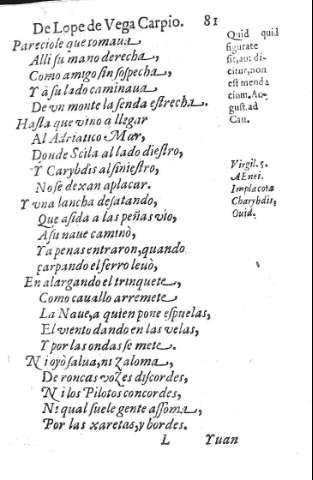 De Lope de Vega Carpio. 81
Pareciole que tomaua
Alli su mano derecha,
Como amigo sin sospecha,
Y à su lado caminaua
De vn monte la senda estrecha.
Hasta que vino a llegar
Al Adriatico Mar,
Donde Scila al lado diestro,
Y Carybdis al siniestro,
No se dexan aplacar.
Y vna lancha desatando,
Que asida a las peñas vio,
A su naue caminò,
Y a penas entraron, quando
çarpando el ferro leuò,
En alargando el trinquete,
Como cauallo arremete
La Naue, a quien pone espuelas,
El viento dando en las velas,
Y por las ondas se mete.
Ni oyò salua, ni zaloma,
De roncas vozes discordes,
Ni los Pilotos concordes,
Ni qual suele gente assoma,
Por las xaretas, y bordes.
L Yuan
Quid quid
figurate
sit, aut di-
citur, non
est menda
cium. Au-
gust. ad
Virgil. 5.
AEnei.
Implacata
Charybdis,
Ouid.